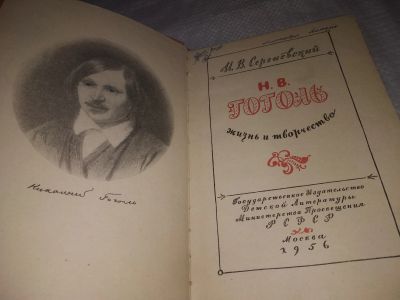 Николай Гоголь
И. В. Сергиевский
Н. В.
ГОГОЛЬ
жизнь и творчество
Государственное Издательство
Детской Литературы
Министерства Просвещения
РСФСР
Москва
1956